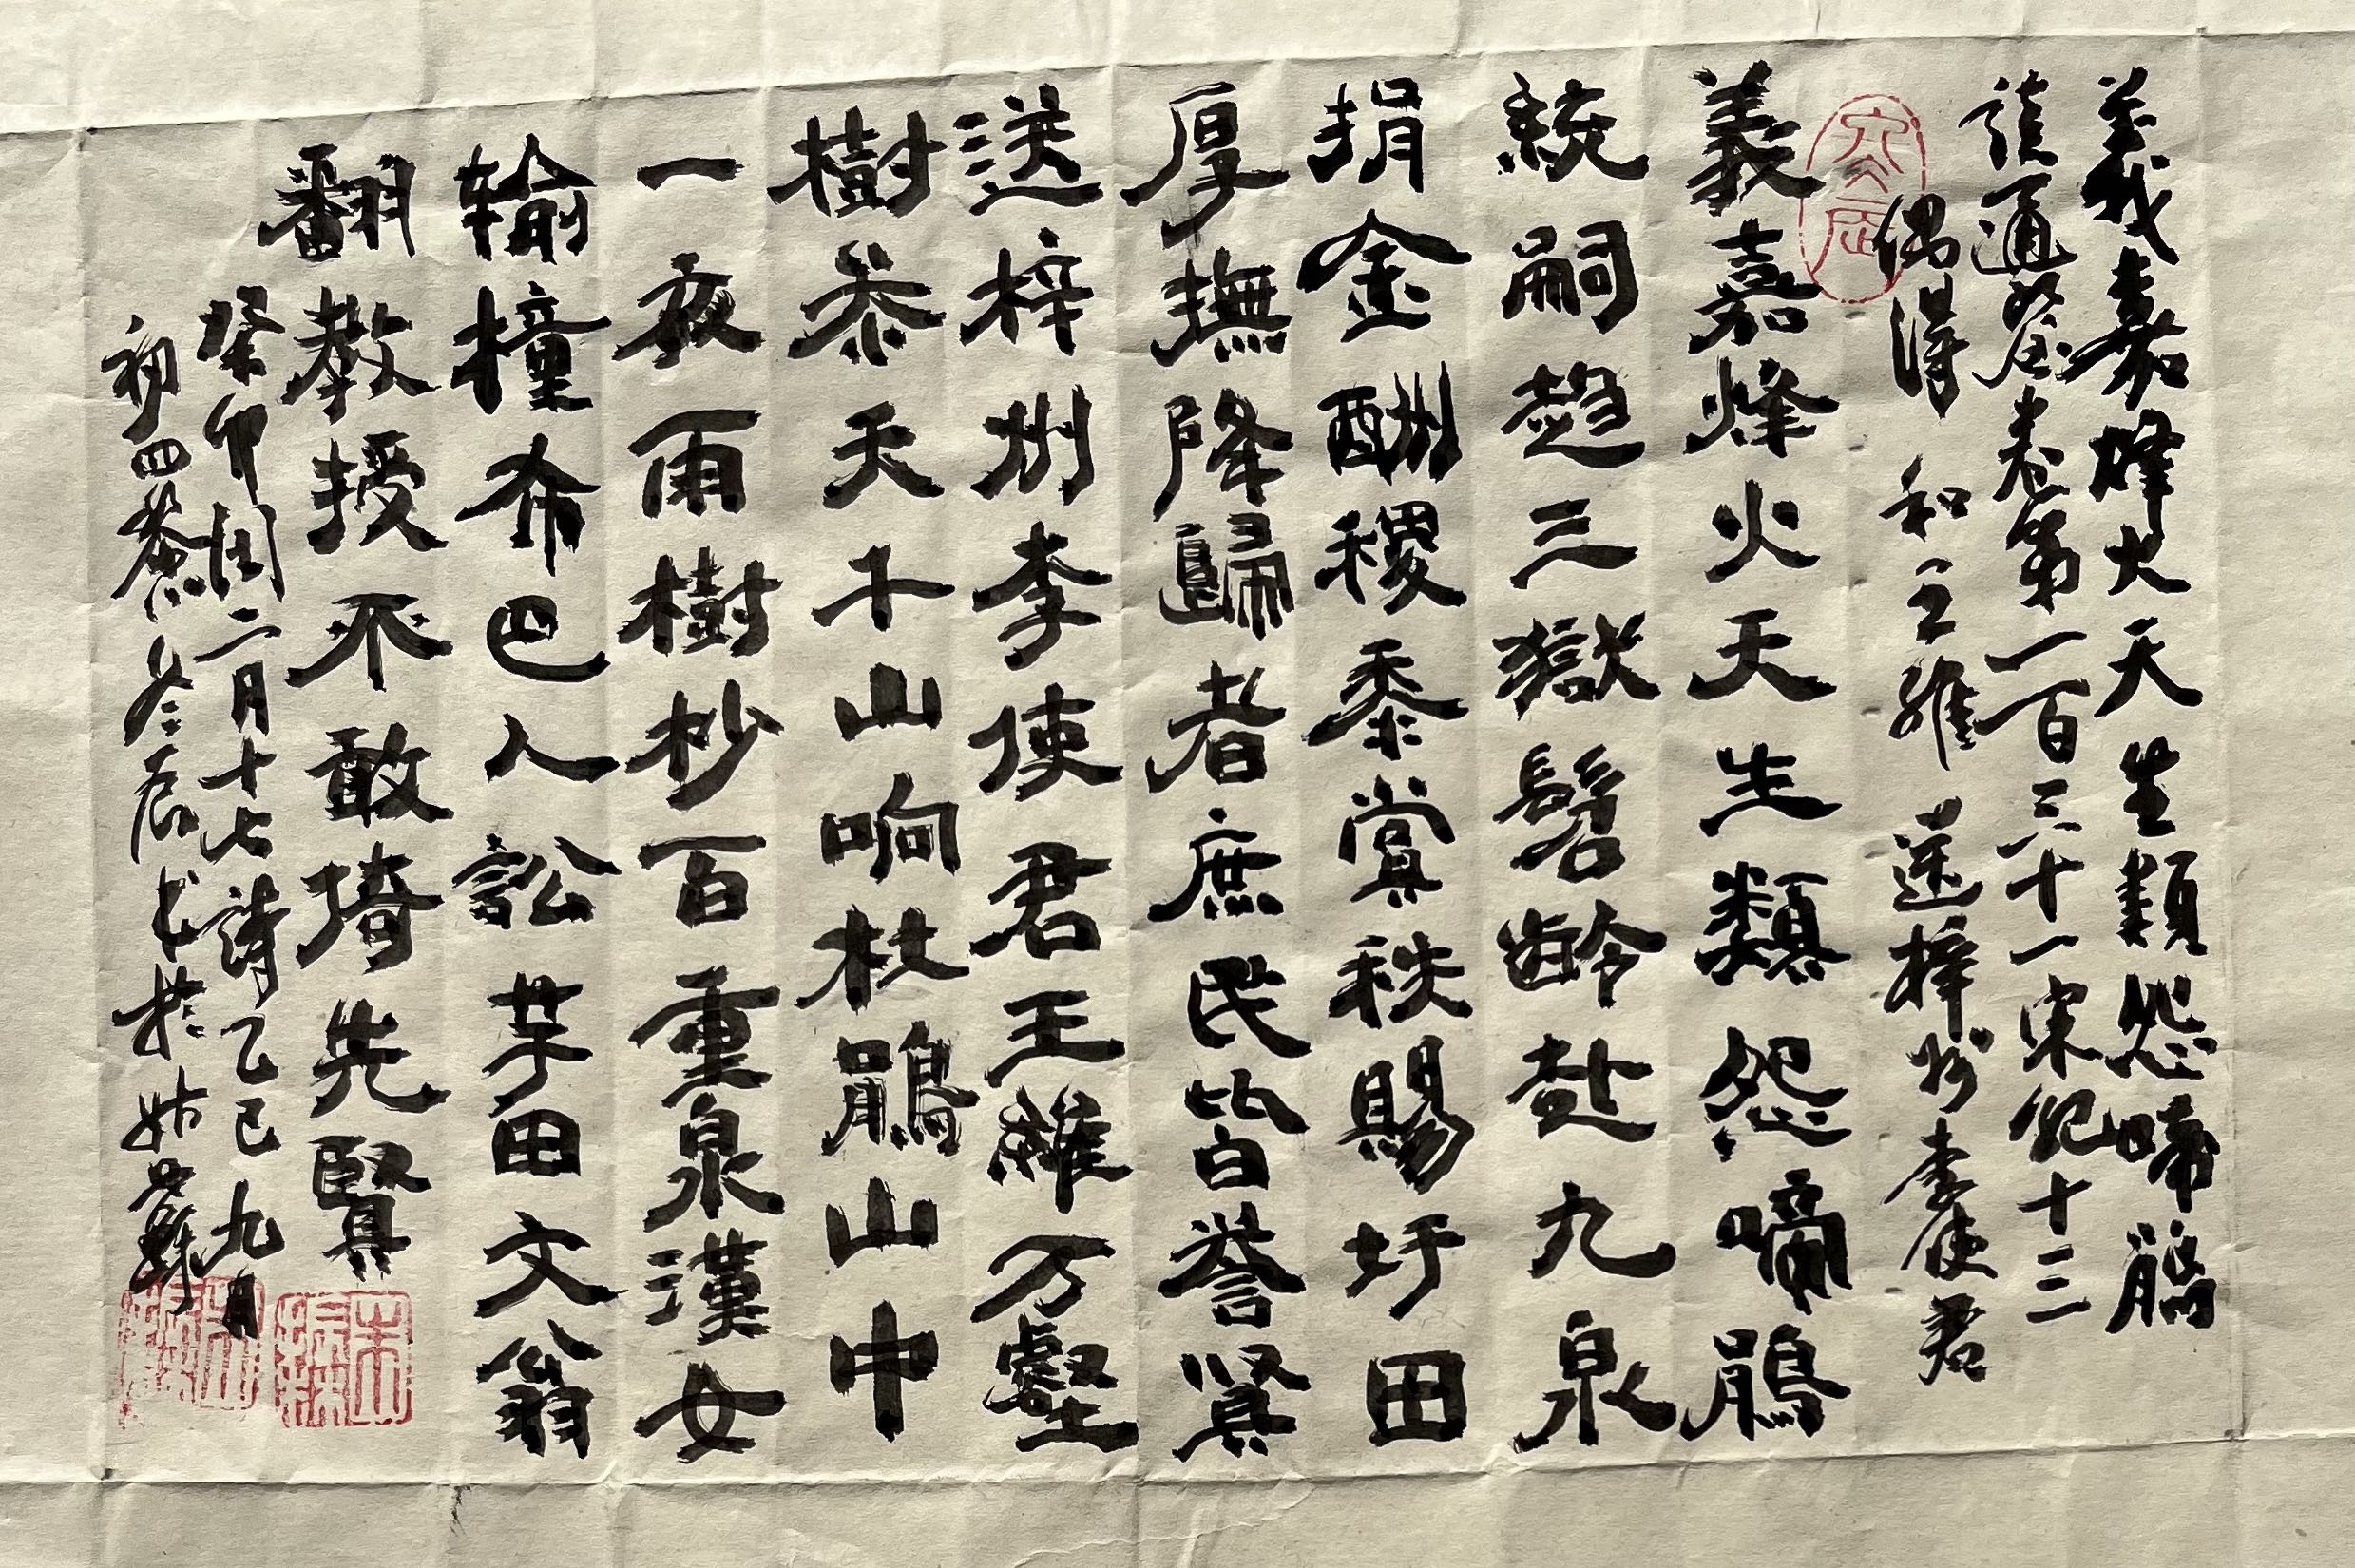 義嘉烽火天生類怨啼鵑
讀通鑒卷第一百三十一宋紀十三
偶得 和王維 送梓州李使君
義嘉烽火天生類怨啼鵑
統嗣趨三獄髫齡赴九泉
捐金酬稷黍賞秩賜圩田
厚撫降歸者庶民皆譽賢
送梓州李使君王維万壑
樹参天千山响杜鵑山中
一夜雨樹杪百重泉漢女
輸橦布巴人訟芋田文翁
翻教授不敢琦先賢
癸卯閏二月十七詩乙巳九月
初四 於姑蘇